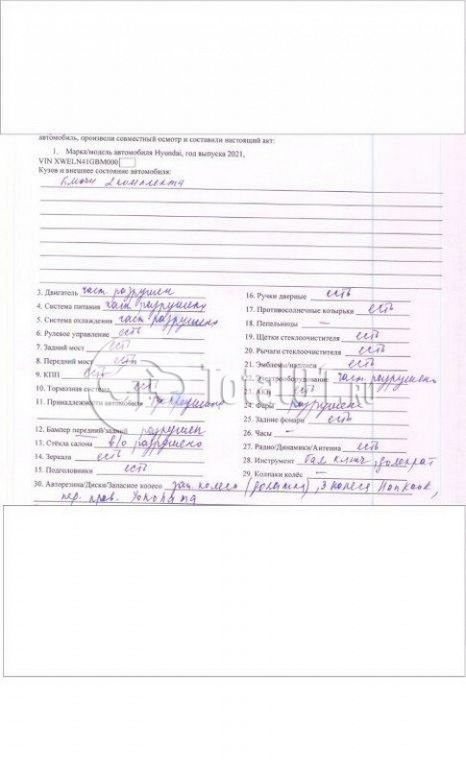 автомобиль, произвели совместный осмотр и составили настоящий акт:
1. Марка/модель автомобиля Hyundai, год выпуска 2021,
VIN XWELN41GBM000
Кузов и внешнее состояние автомобиля:
Ключи 2 комплекта
3. Двигатель част. разрушен
4. Система питания част. разрушена
5. Система охлаждения част. разрушена
6. Рулевое управление есть
7. Задний мост есть
8. Передний мост есть
9. КПП есть
10. Тормозная система есть
11. Принадлежности автомобиля
12. Бампер передний/задний разрушен
13. Стекла салона в/о разрушено
14. Зеркала есть
15. Подголовники есть
16. Ручки дверные есть
17. Противосолнечные козырьки есть
18. Пепельницы –
19. Щетки стеклоочистителя есть
20. Рычаги стеклоочистителя есть
21. Эмблемы/надписи есть
22. Электрооборудование част. разрушено
24. Фары разрушены
25. Задние фонари есть
26. Часы –
27. Радио/Динамики/Антенна есть
28. Инструмент бал. ключ, домкрат
29. Колпаки колёс –
30. Авторезина/Диски/Запасное колесо зап. колесо (докатка), 3 колеса Hankook,
пер. прав. Yokohama
Total01.ru